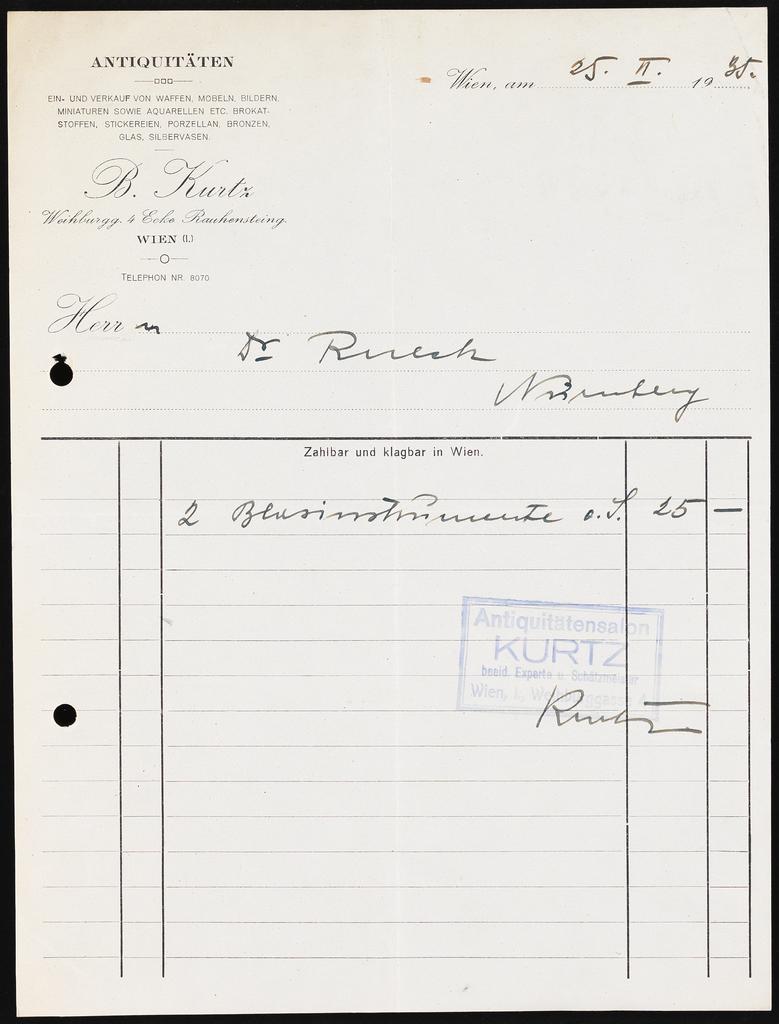 ANTIQUITÄTEN
EIN- UND VERKAUF VON WAFFEN, MÖBELN, BILDERN,
MINIATUREN SOWIE AQUARELLEN ETC. BROKAT-
STOFFEN, STICKEREIEN, PORZELLAN, BRONZEN,
GLAS, SILBERVASEN.
B. Kurtz
Weihburgg. 4 Ecke Rauhensteing.
WIEN (I.)
TELEPHON NR. 8070
Wien, am 25. II. 1935.
Herrn
Dr Rueck
Nürnberg
Zahlbar und klagbar in Wien.
2 Blasinstrumente ö.S. 25 —
Antiquitätensalon
KURTZ
beeid. Experte u. Schätzmeister
Wien, I., Weihburggasse 4
Kurtz